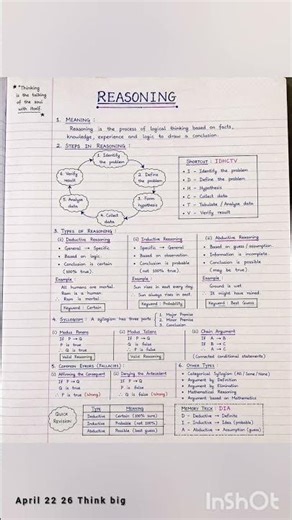 "Thinking
is the talking
of the soul
with itself."
REASONING
1. MEANING :
Reasoning is the process of logical thinking based on facts,
knowledge, experience and logic to draw a conclusion.
2. STEPS IN REASONING :
1. Identify
the problem
2. Define
the problem
3. Form
hypothesis
4. Collect
data
5. Analyse
data
6. Verify
result
SHORTCUT : IDHCTV
I – Identify the problem
D – Define the problem
H – Hypothesis
C – Collect data
T – Tabulate / Analyse data
V – Verify result
3. TYPES OF REASONING :
(i) Deductive Reasoning
• General → Specific
• Based on logic.
• Conclusion is certain
(100% true).
Example
All humans are mortal.
Ram is a human.
Ram is mortal
Keyword : Certain
(ii) Inductive Reasoning
• Specific → General
• Based on observation.
• Conclusion is probable
(not 100% true).
Example
Sun rises in east every day.
Sun always rises in east.
Keyword : Probability
(iii) Abductive Reasoning
• Based on guess / assumption.
• Information is incomplete.
• Conclusion is possible
(may be true).
Example
Ground is wet
It might have rained
Keyword : Best Guess
4. SYLLOGISM : A syllogism has three parts
1. Major Premise
2. Minor Premise
3. Conclusion
(i) Modus Ponens
If P → Q
P is true
∴ Q is true
Valid Reasoning
(ii) Modus Tollens
If P → Q
Q is false
∴ P is false
Valid Reasoning
(iii) Chain Argument
If A → B
If B → C
∴ A → C
(Connected conditional statements)
5. COMMON ERRORS (FALLACIES)
(i) Affirming the Consequent
If P → Q
Q is true
∴ P is true (wrong)
(ii) Denying the Antecedent
If P → Q
P is false
∴ Q is false (wrong)
6. OTHER TYPES
• Categorical Syllogism (All / Some / None)
• Argument by Definition
• Argument by Elimination
• Mathematical Reasoning
• Argument based on Mathematics
Quick
Revision
TYPE MEANING
Deductive Certain (100% sure)
Inductive Probable (not 100%)
Abductive Possible (best guess)
MEMORY TRICK : DIA
D – Deductive → Definite
I – Inductive → Idea (probable)
A – Abductive → Assumption (best guess)
April 22 26 Think big
InShOt